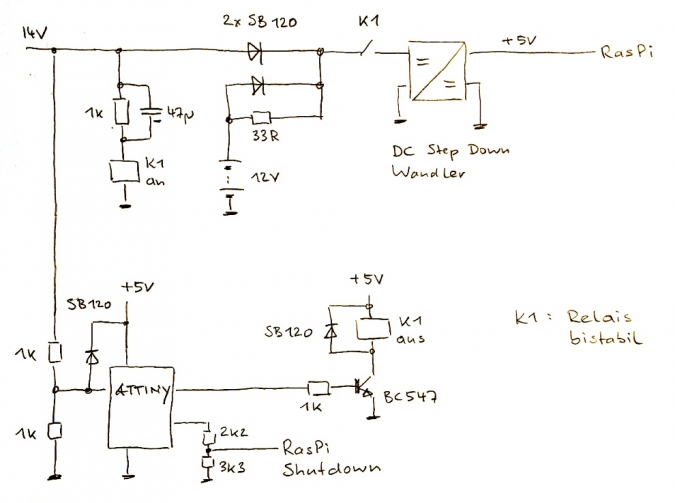 14V
2x SB120
K1
+5V
RasPi
=
=
1k
47µ
33R
K1
an
12V
DC Step Down
Wandler
+5V
+5V
SB120
SB120
K1
aus
K1: Relais
bistabil
1k
ATTINY
1k
BC547
1k
2k2
RasPi
3k3
Shutdown